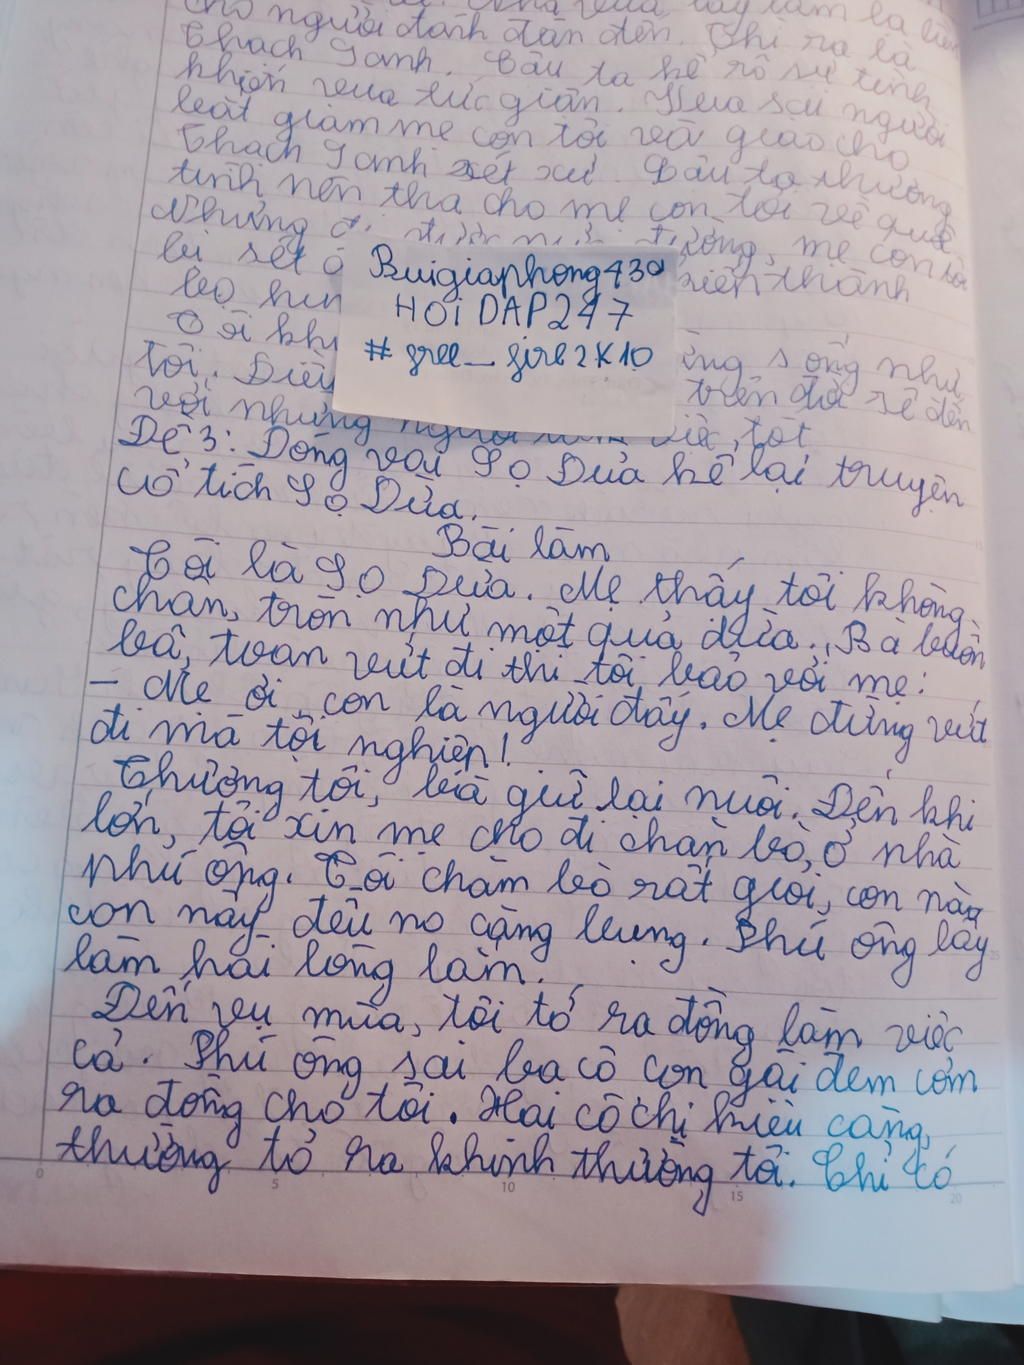 cho người đánh đàn đến. Thì ra là
Thạch Sanh. Cậu ta kể rõ sự tình
khiến vua tức giận. Vua sai người
bắt giam mẹ con tôi và giao cho
Thạch Sanh xét xử. Cậu ta thương
tình nên tha cho mẹ con tôi về quê
Nhưng đường, mẹ con tôi
bị sét biến thành
bọ hun
Tôi sống như
tôi. Điều trên đời sẽ đến
với những người việc tốt
Đề 3: Đóng vai Sọ Dừa kể lại truyện
cổ tích Sọ Dừa.
Buigiaphong430
HOIDAP247
# gree_girl2K10
Bài làm
Tôi là Sọ Dừa. Mẹ thấy tôi không
chân, tròn như một quả dừa. Bà buồn
bã, toan vứt đi thì tôi bảo với mẹ:
- Mẹ ơi, con là người đấy. Mẹ đừng vứt
đi mà tội nghiệp!
Thương tôi, bà giữ lại nuôi. Đến khi
lớn, tôi xin mẹ cho đi chăn bò ở nhà
phú ông. Tôi chăm bò rất giỏi, con nào
con nấy đều no căng bụng. Phú ông lấy
làm hài lòng lắm.
Đến vụ mùa, tôi tớ ra đồng làm việc
cả. Phú ông sai ba cô con gái đem cơm
ra đồng cho tôi. Hai cô chị kiêu căng,
thường tỏ ra khinh thường tôi. Chỉ có
0 5 10 15 20